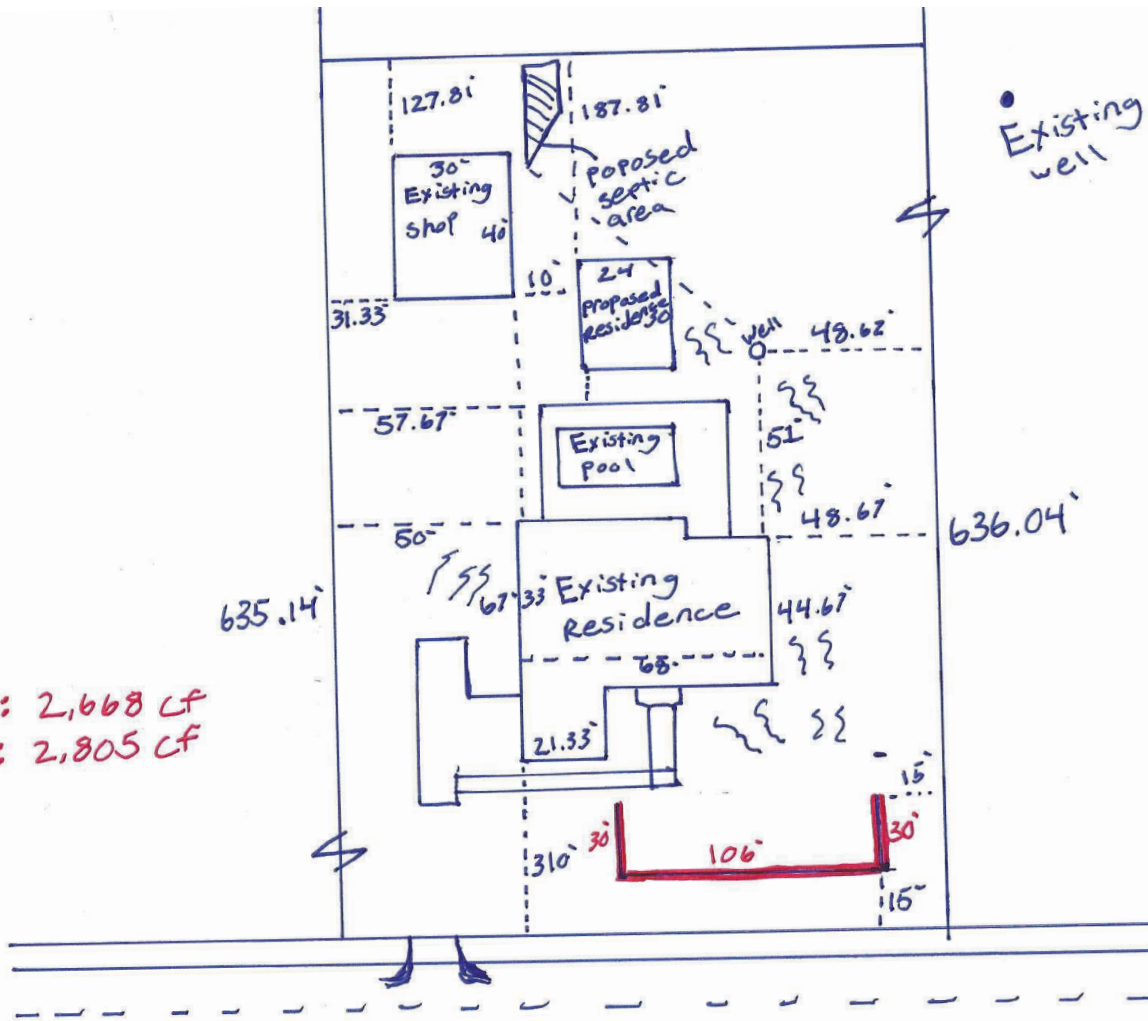 127.81'
187.81'
Existing
well
30'
Existing
shop
40'
poposed
septic
area
10'
24'
proposed
Residence
30
31.33'
well
48.62'
57.67'
Existing
pool
51'
50'
48.67'
636.04'
67.33'
Existing
Residence
44.67'
635.14'
68'
: 2,668 cf
: 2,805 cf
21.33'
15'
30'
106'
30'
310'
15'